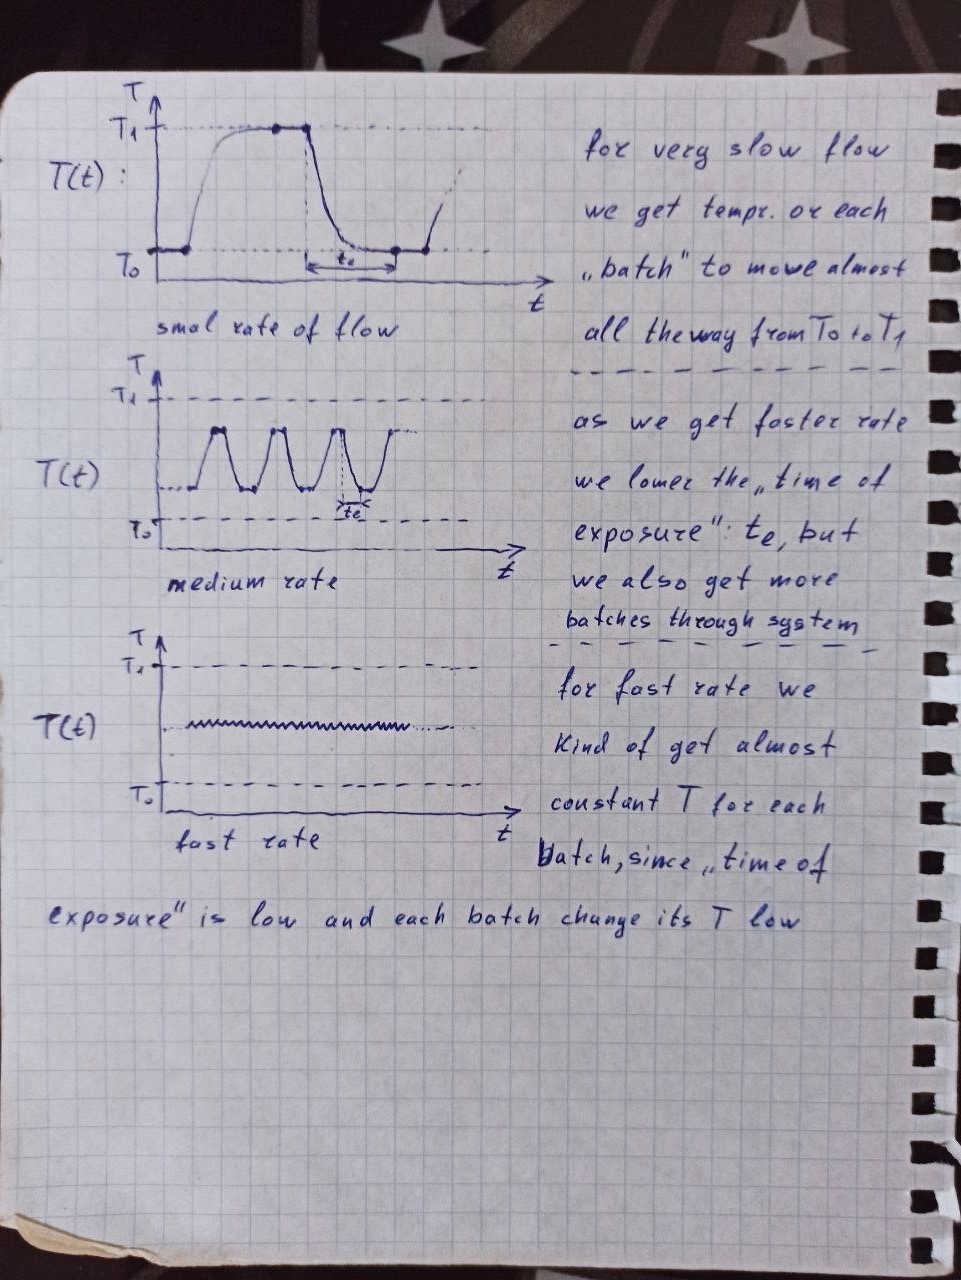 T
T1
T(t) :
T0
te
t
smal rate of flow
for very slow flow
we get tempr. or each
„batch" to move almost
all the way from T0 to T1
T
T1
T(t)
T0
te
t
medium rate
as we get foster rate
we lower the „time of
exposure": te, but
we also get more
batches through system
T
T1
T(t)
T0
t
fast rate
for fast rate we
kind of get almost
constant T for each
batch, since „time of
exposure" is low and each batch change its T low